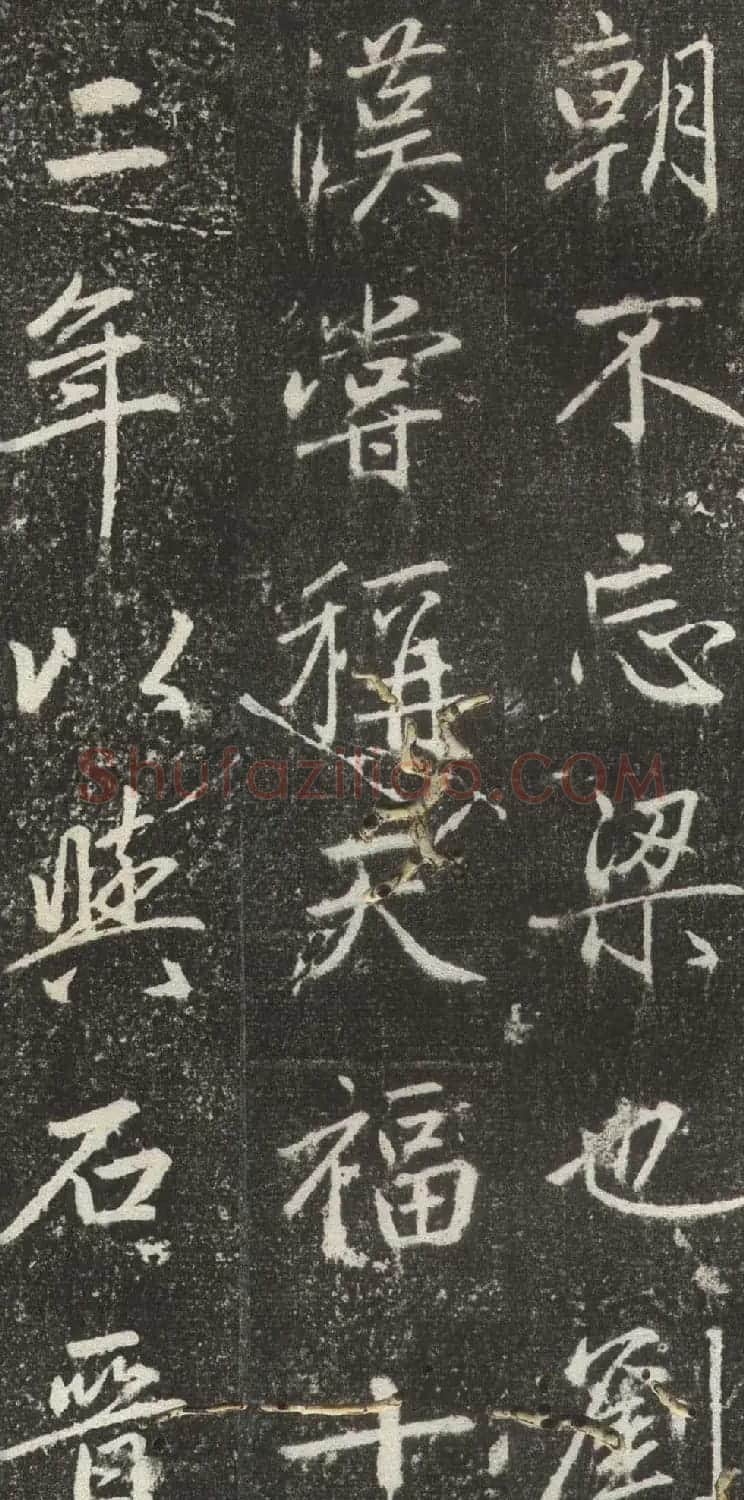 朝不忘梁也劉
漢嘗稱天福十
二年以石晉
Shufaziliao.COM